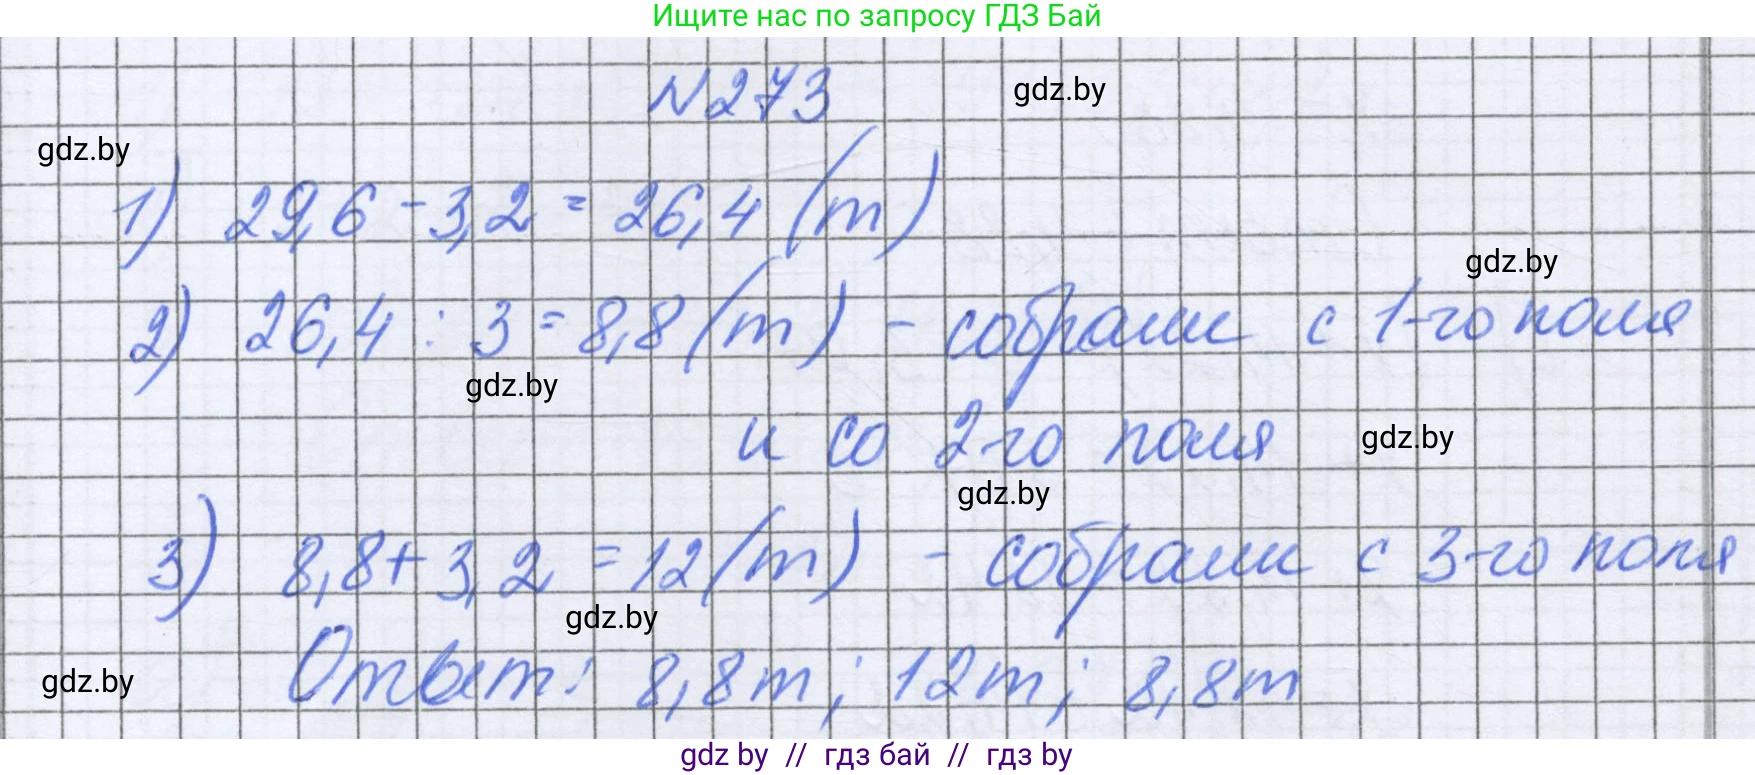 Ищите нас по запросу ГДЗ Бай
N273
gdz.by
gdz.by
1) 29,6 - 3,2 = 26,4 (т)
gdz.by
2) 26,4 : 3 = 8,8 (т) - собрали с 1-го поля
gdz.by
и со 2-го поля
gdz.by
gdz.by
3) 8,8 + 3,2 = 12 (т) - собрали с 3-го поля
gdz.by
Ответ: 8,8т; 12т; 8,8т
gdz.by
gdz by // гдз бай // гдз by